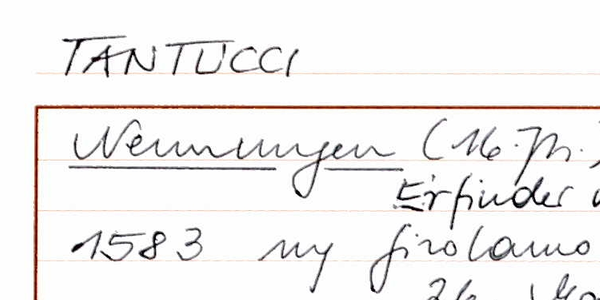 TANTUCCI
Nennungen (16. Jh.)
Erfinder
1583 my Girolamo
26